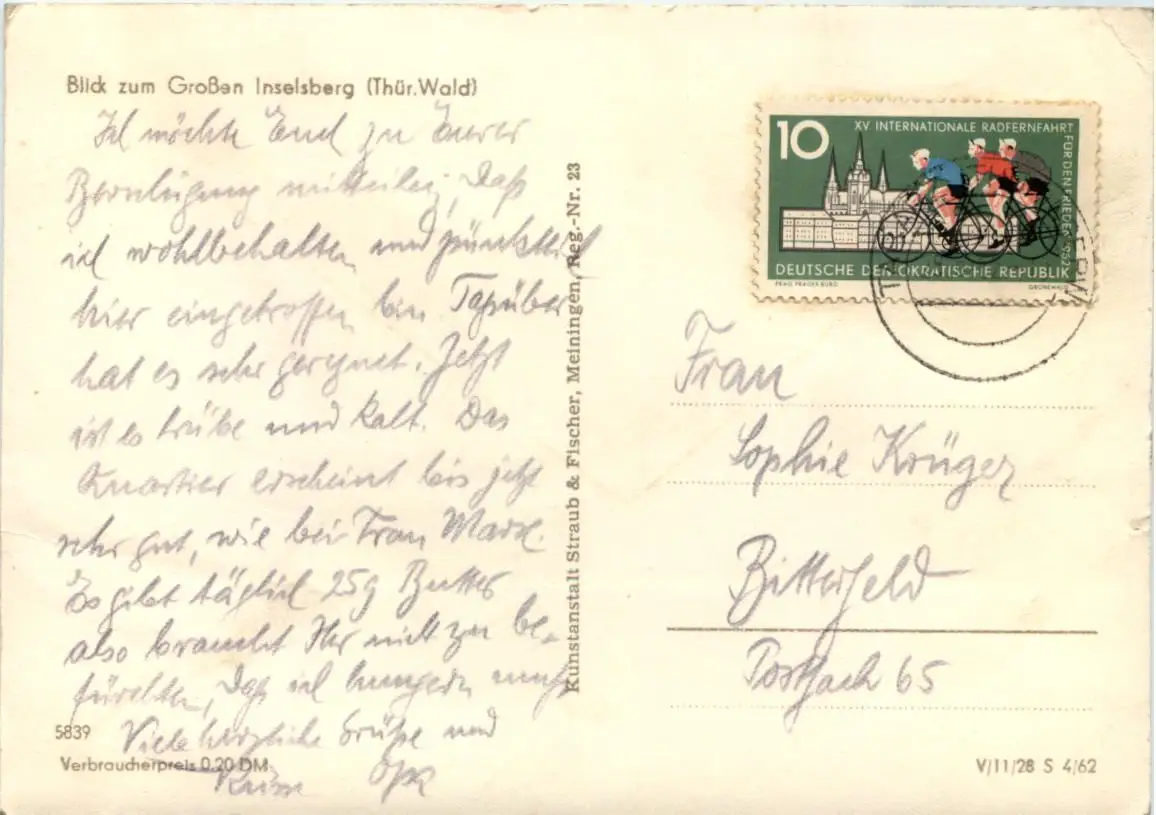 Blick zum Großen Inselsberg (Thür. Wald)
Ich möchte Euch zu Eurer
Beruhigung mitteilen, daß
ich wohlbehalten und pünktlich
hier eingetroffen bin. Tagsüber
hat es sehr geregnet. Jetzt
ist es trübe und kalt. Das
Quartier erscheint bis jetzt
sehr gut, wie bei Frau Marx.
Es gibt täglich 25g Butter
also braucht Ihr nicht zu be-
fürchten, daß ich hungern muß
Viele herzliche Grüße und
5839
Verbraucherpreis 0.20 DM
Kunstanstalt Straub & Fischer, Meiningen, Reg.-Nr. 23
10
XV INTERNATIONALE RADFERNFAHRT
FÜR DEN FRIEDEN 1962
DEUTSCHE DEMOKRATISCHE REPUBLIK
PRAG PRAGER BURG
GRÜNEWALD
Frau
Sophie Krüger
Bitterfeld
Postfach 65
V/11/28 S 4/62